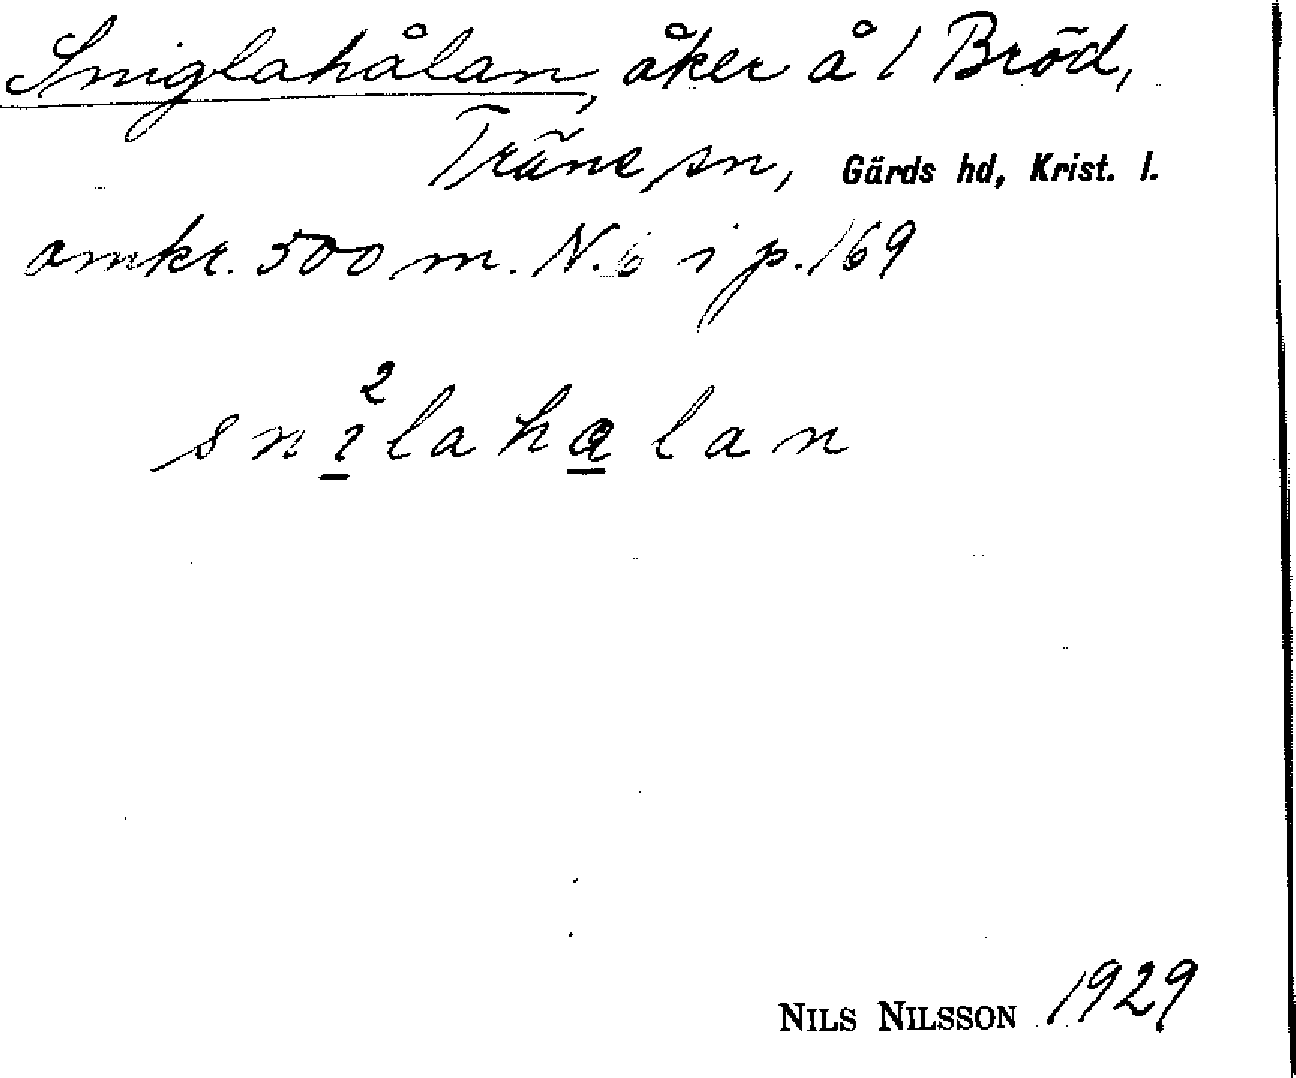 Sniglahålan, åker å 1 Bröd,
Träne sn, Gärds hd, Krist. l.
omkr. 500 m. N. ö i p. 169
snilahalan
NILS NILSSON 1929